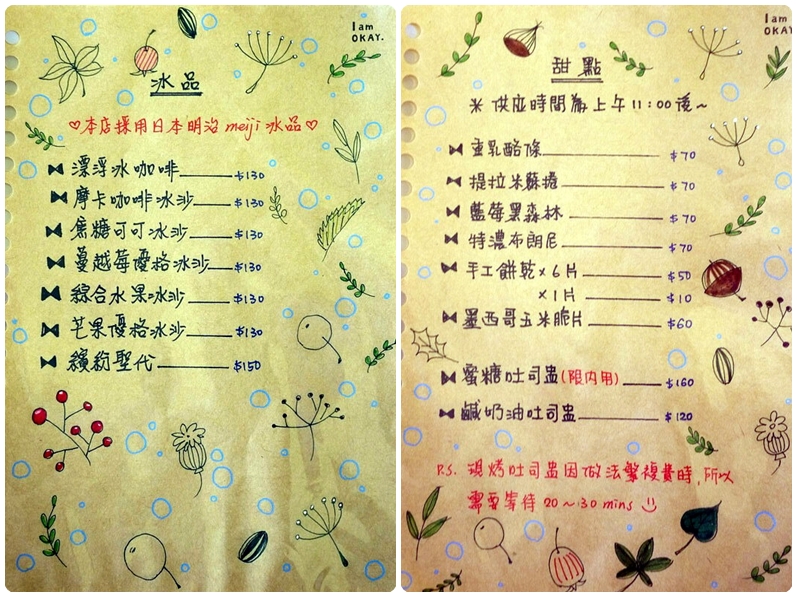 I am
OKAY.
冰品
♡本店採用日本明治 meiji 冰品♡
漂浮冰咖啡 $130
摩卡咖啡冰沙 $130
焦糖可可冰沙 $130
蔓越莓優格冰沙 $130
綜合水果冰沙 $130
芒果優格冰沙 $130
繽紛聖代 $150
I am
OKAY.
甜點
米 供應時間為上午 11:00 後~
重乳酪條 $70
提拉米蘇捲 $70
藍莓黑森林 $70
特濃布朗尼 $70
手工餅乾 x 6片 $50
x 1片 $10
墨西哥玉米脆片 $60
蜜糖吐司盅(限內用) $160
鹹奶油吐司盅 $120
P.S. 現烤吐司盅因做法繁複費時,所以
需要等待 20~30 mins